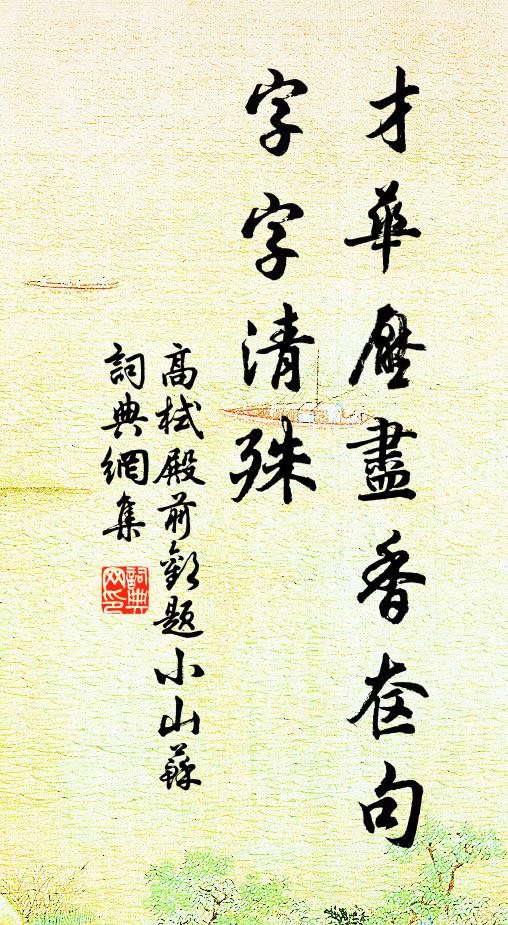 才華壓盡香奩句
字字清殊
高栻殿前歡題小山蘇
詞典網集
詞典网印